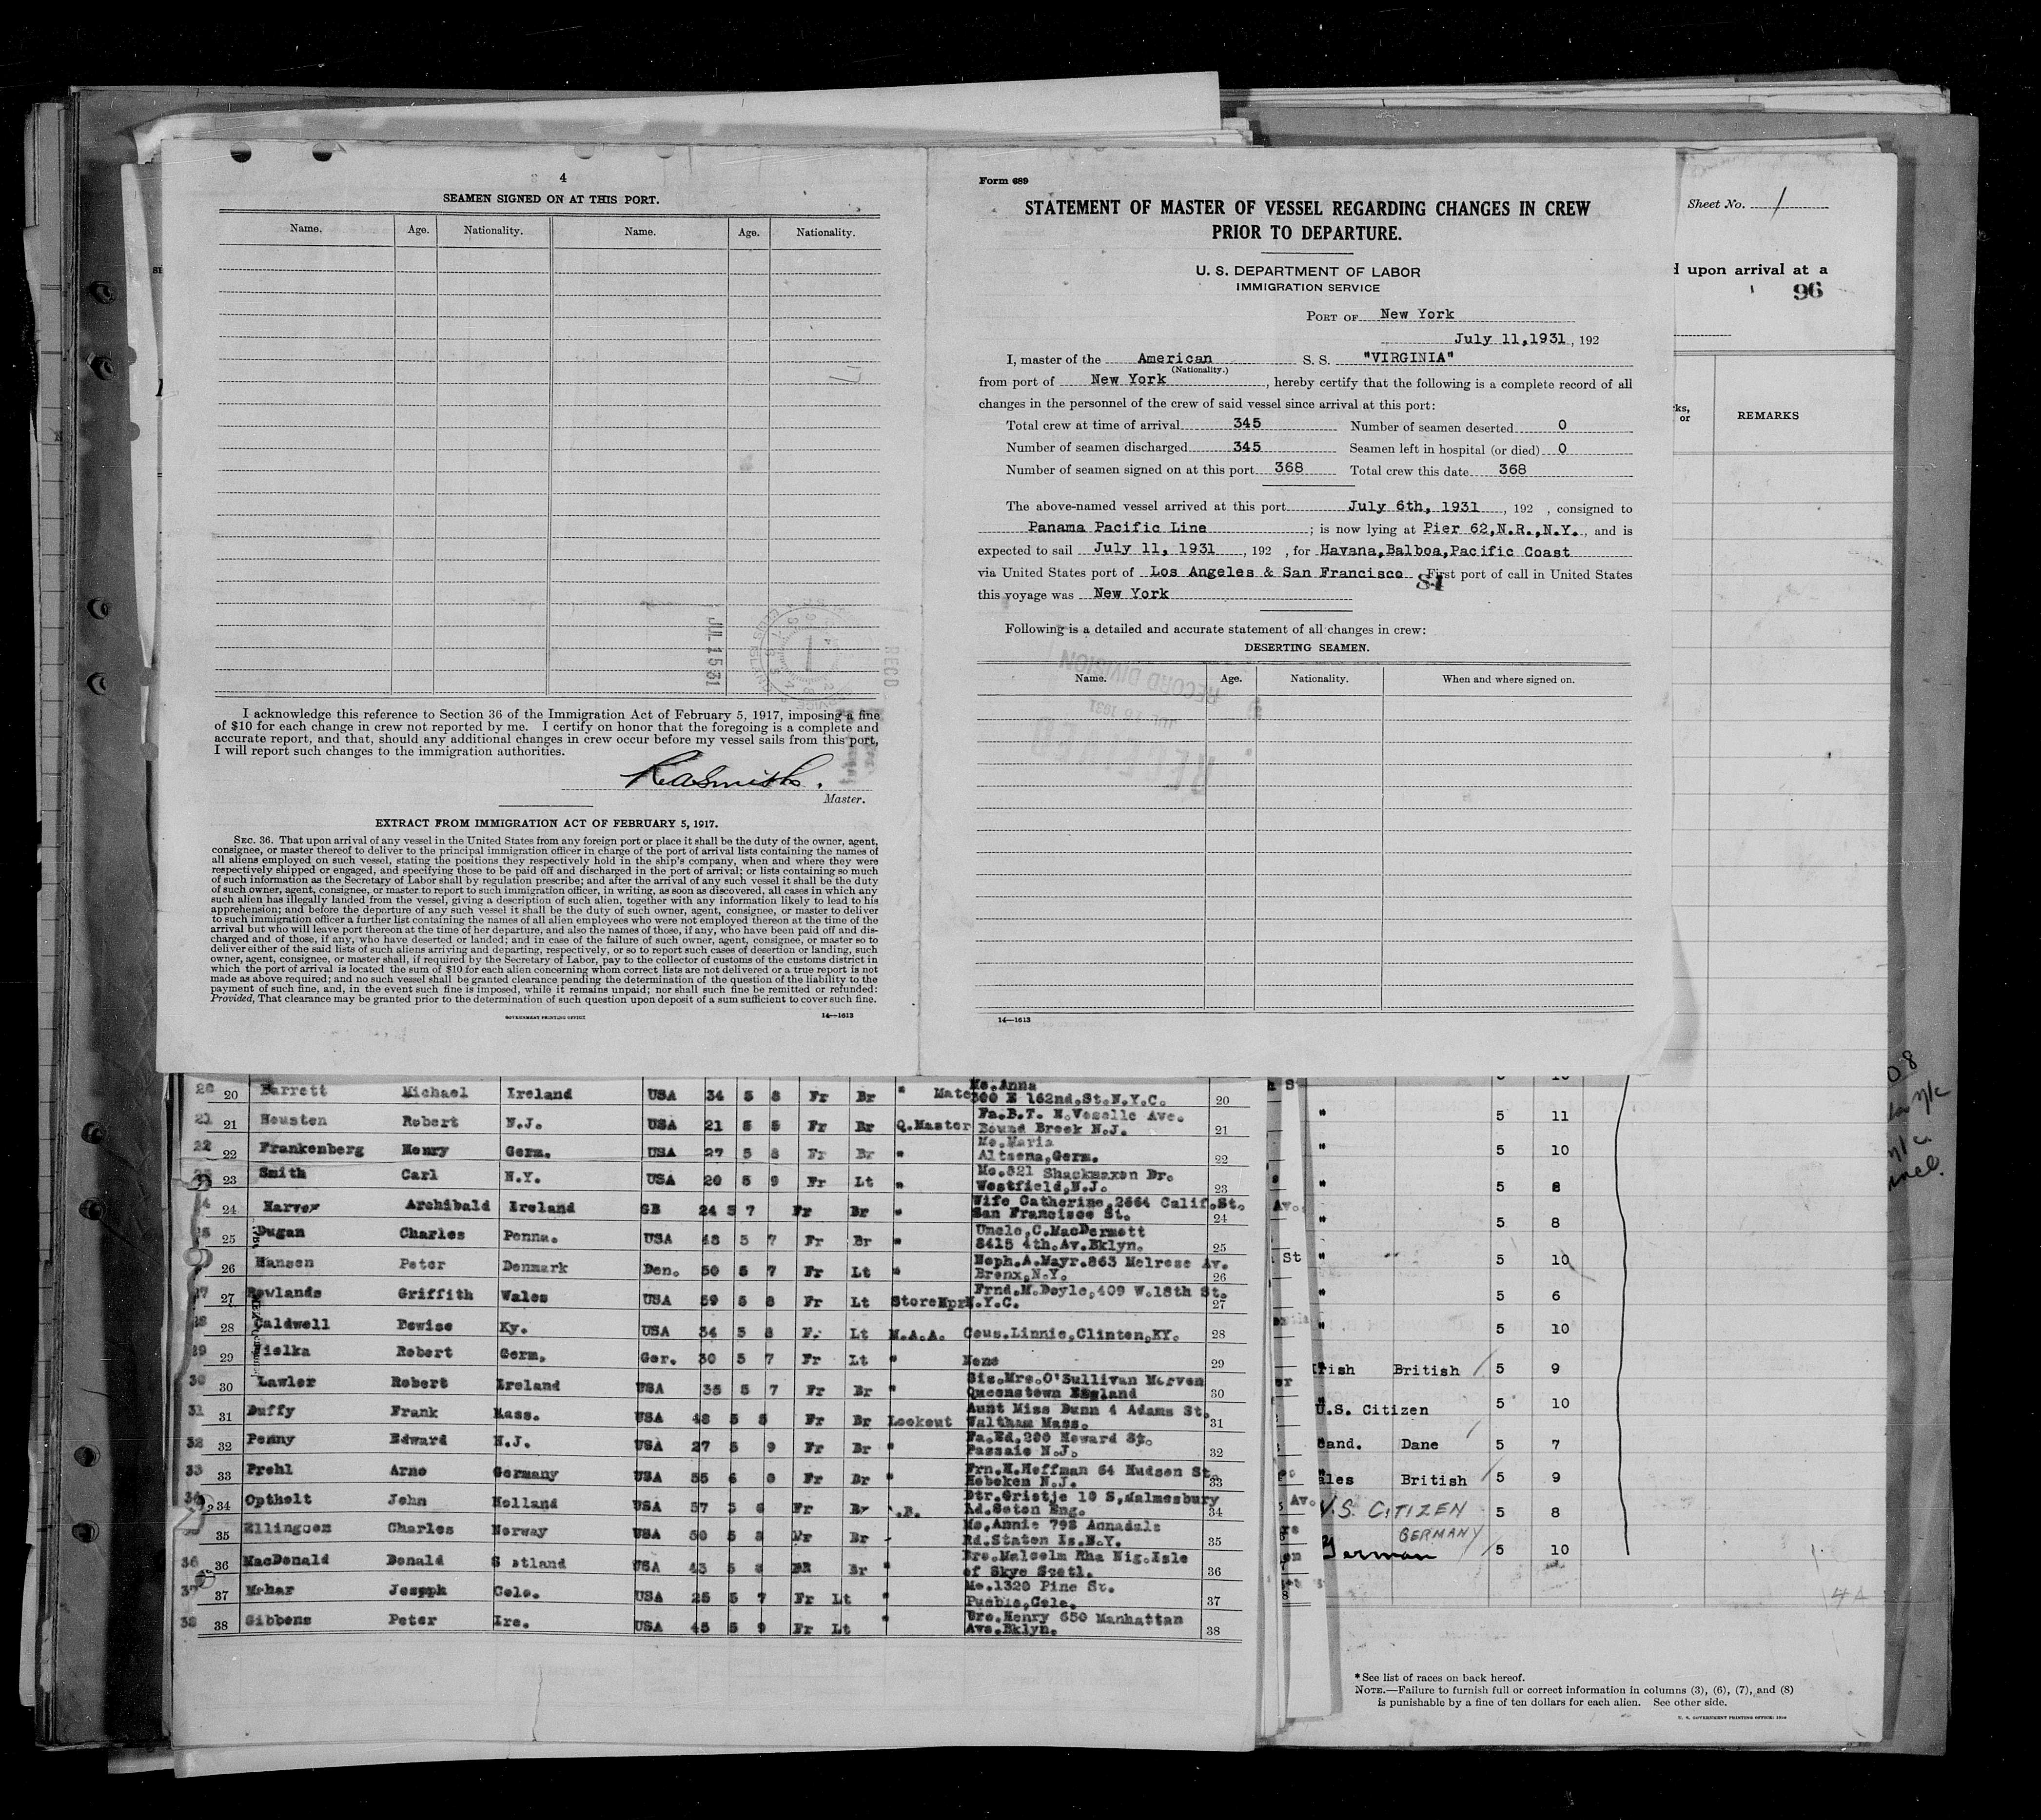 4
SEAMEN SIGNED ON AT THIS PORT.
Name. Age. Nationality. Name. Age. Nationality.
JUL 15 31
RECD
I acknowledge this reference to Section 36 of the Immigration Act of February 5, 1917, imposing a fine
of $10 for each change in crew not reported by me. I certify on honor that the foregoing is a complete and
accurate report, and that, should any additional changes in crew occur before my vessel sails from this port,
I will report such changes to the immigration authorities.
R A Smith.
Master.
EXTRACT FROM IMMIGRATION ACT OF FEBRUARY 5, 1917.
SEC. 36. That upon arrival of any vessel in the United States from any foreign port or place it shall be the duty of the owner, agent,
consignee, or master thereof to deliver to the principal immigration officer in charge of the port of arrival lists containing the names of
all aliens employed on such vessel, stating the positions they respectively hold in the ship's company, when and where they were
respectively shipped or engaged, and specifying those to be paid off and discharged in the port of arrival; or lists containing so much
of such information as the Secretary of Labor shall by regulation prescribe; and after the arrival of any such vessel it shall be the duty
of such owner, agent, consignee, or master to report to such immigration officer, in writing, as soon as discovered, all cases in which any
such alien has illegally landed from the vessel, giving a description of such alien, together with any information likely to lead to his
apprehension; and before the departure of any such vessel it shall be the duty of such owner, agent, consignee, or master to deliver
to such immigration officer a further list containing the names of all alien employees who were not employed thereon at the time of the
arrival but who will leave port thereon at the time of her departure, and also the names of those, if any, who have been paid off and dis-
charged and of those, if any, who have deserted or landed; and in case of the failure of such owner, agent, consignee, or master so to
deliver either of the said lists of such aliens arriving and departing, respectively, or so to report such cases of desertion or landing, such
owner, agent, consignee, or master shall, if required by the Secretary of Labor, pay to the collector of customs of the customs district in
which the port of arrival is located the sum of $10 for each alien concerning whom correct lists are not delivered or a true report is not
made as above required; and no such vessel shall be granted clearance pending the determination of the question of the liability to the
payment of such fine, and, in the event such fine is imposed, while it remains unpaid; nor shall such fine be remitted or refunded:
Provided, That clearance may be granted prior to the determination of such question upon deposit of a sum sufficient to cover such fine.
GOVERNMENT PRINTING OFFICE 14—1613
Form 689
STATEMENT OF MASTER OF VESSEL REGARDING CHANGES IN CREW
PRIOR TO DEPARTURE.
U. S. DEPARTMENT OF LABOR
IMMIGRATION SERVICE
PORT OF New York
July 11,1931, 192
I, master of the American S. S. "VIRGINIA"
(Nationality.)
from port of New York, hereby certify that the following is a complete record of all
changes in the personnel of the crew of said vessel since arrival at this port:
Total crew at time of arrival 345 Number of seamen deserted 0
Number of seamen discharged 345 Seamen left in hospital (or died) 0
Number of seamen signed on at this port 368 Total crew this date 368
The above-named vessel arrived at this port July 6th, 1931, 192 , consigned to
Panama Pacific Line ; is now lying at Pier 62,N.R.,N.Y., and is
expected to sail July 11, 1931, 192 , for Havana,Balboa,Pacific Coast
via United States port of Los Angeles & San Francisco First port of call in United States
84
this voyage was New York
Following is a detailed and accurate statement of all changes in crew:
DESERTING SEAMEN.
Name. Age. Nationality. When and where signed on.
RECEIVED
JUL 16 1931
RECORD DIVISION
14—1613
Sheet No. 1
upon arrival at a
96
REMARKS
20 Barrett Michael Ireland USA 34 5 8 Fr Br " Mate Mo.Anna 20
300 E 162nd.St.N.Y.C.
21 21 Housten Robert N.J. USA 21 5 5 Fr Br Q.Master Fa.B.T. N.Voselle Ave. 21
Bound Brook N.J.
22 22 Frankenberg Henry Germ. USA 27 5 8 Fr Br " Mo.Maria 22
Altoena,Germ.
23 Smith Carl N.Y. USA 20 5 9 Fr Lt " Mo.821 Shackmaxon Dr. 23
Westfield,N.J.
24 Harvey Archibald Ireland GB 24 5 7 Fr Br " Wife Catherine,2664 Calif.St. 24
San Francisco St.
25 Dugan Charles Penna. USA 48 5 7 Fr Br " Uncle,C.MacDermott 25
8415 4th.Av.Bklyn.
26 Hansen Peter Denmark Den. 50 5 7 Fr Lt " Neph.A.Mayr.863 Melrose Av. 26
Bronx,N.Y.
27 Rowlands Griffith Wales USA 59 5 8 Fr Lt StoreKpr Frnd.M.Doyle,409 W.18th St. 27
N.Y.C.
28 Caldwell Dewise Ky. USA 34 5 8 F. Lt M.A.A. Cous.Linnie,Clinton,KY. 28
29 29 Mielka Robert Germ. Ger. 30 5 7 Fr Lt " None 29
30 30 Lawler Robert Ireland USA 35 5 7 Fr Br " Sis.Mrs.O'Sullivan Morven 30
Queenstown England
31 31 Duffy Frank Mass. USA 48 5 5 Fr Br Lookout Aunt Miss Dunn 4 Adams St. 31
Waltham Mass.
32 32 Penny Edward N.J. USA 27 5 9 Fr Br " Fa.Ed.200 Howard St. 32
Passaic N.J.
33 33 Prehl Arno Germany USA 55 6 0 Fr Br " Frn.H.Hoffman 64 Hudson St 33
Hoboken N.J.
34 Optholt John Holland USA 57 5 6 Fr Br Dtr.Grietje 10 S,Malmesbury 34
Rd.Seton Eng.
35 Ellingsen Charles Norway USA 50 5 8 Fr Br Mo.Annie 798 Annadale 35
Rd.Staten Is.N.Y.
36 36 MacDonald Donald S otland USA 43 5 8 Br " Bro.Malcolm Rha Nig.Isle 36
of Skye Scotl.
37 37 Mohar Joseph Colo. USA 25 5 7 Fr Lt " Mo.1320 Pine St. 37
Pueblo,Colo.
38 38 Gibbons Peter Ire. USA 45 5 9 Fr Lt " Bro.Henry 650 Manhattan 38
Ave.Bklyn.
" 5 11
" 5 10
" 5 8
" 5 8
" 5 10
" 5 6
" 5 10
Irish British 5 9
U.S. Citizen 5 10
Scand. Dane 5 7
Wales British 5 9
U.S. CITIZEN 5 8
GERMANY
German 5 10
*See list of races on back hereof.
NOTE.—Failure to furnish full or correct information in columns (3), (6), (7), and (8)
is punishable by a fine of ten dollars for each alien. See other side.
U. S. GOVERNMENT PRINTING OFFICE